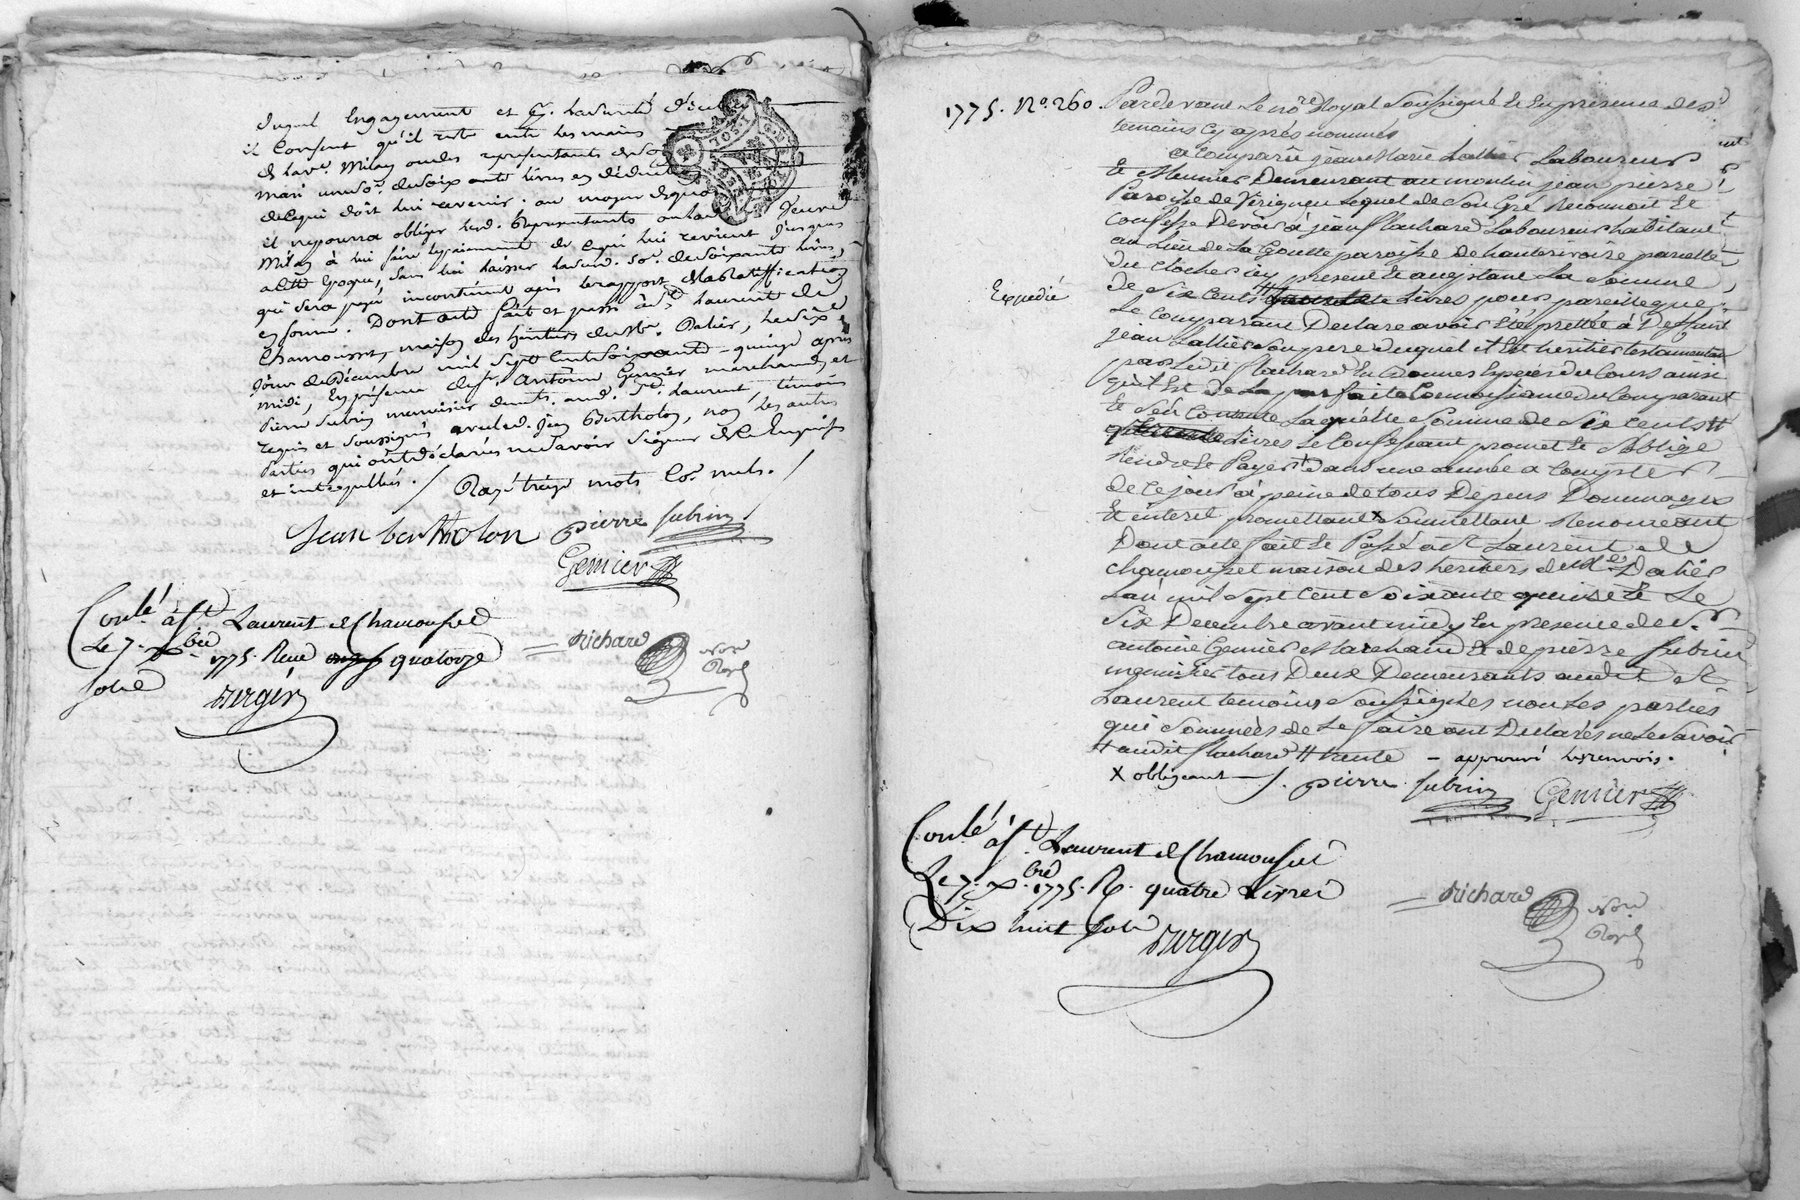 duquel Engagement et
il Consent qu'il reste entre les mains
de lad. ve. Milan ou des representants de son
mari une so.e de soixante livres en déduction
de ce qui doit lui revenir. au moyen de quoi
il ne pourra obliger lesd. Representants
Milan à lui faire le payement de ce qui lui revient jusques
a cette Epoque, sans lui laisser lad. so.e de soixante livres,
qui sera payé incontinent après le rapport de la Ratiffication
en forme. Dont acte fait et passé à St. Laurent de
Chamousset, maison des héritiers du Sr. Dalier, le six
jour de Décembre mil sept cent soixante-quinze après
midi, En présence de sr. Antoine Genier marchand, et
Pierre Subrin menuisier demts. aud. St. Laurent, témoins
requis et soussignés avec led. Jean Bertholon, non les autres
Parties qui ont déclarés ne savoir signer de ce Enquises
et interpellées. / Rayé treize mots co.e nuls. /
Jean bertholon pierre subrin
Genier
Con.lé à St. Laurent de Chamousset
Le 7. xbre 1775. Reçu quatorze
sols
Durger
Richard no.re Royal
1775. No. 260. Pardevant Le no.re Royal Soussigné Et En presence des
temoins Cy après nommés
a Comparû jean Marie Lallier Laboureur
Et Meunier Demeurant au moulin jean pierre
Paroisse de Virigneu Lequel de Son gré Reconnoit Et
Confesse Devoir à jean flachard Laboureur habitant
au Lieu de La Goutte paroisse de hauterivoire parcelle
du clocher icy present Et acceptant La Somme
Expedié
De Six Cents # Livres pour pareille que
Le Comparant Declare avoir Eté prettée à Deffunt
jean Lallier Son pere duquel il Est heritier testamentaire
par Ledit flachard En bonnes Especes du Cours ainsi
qu'il Est De La parfaite Connoissance du Comparant
Et S'en Contente Laquelle Somme de Six Cents #
Livres Le Confessant promet Et S'oblige
Rendre Et Payer # dans une année a Compter
de Ce jour à peine de tous Depens Dommages
Et interet promettant x Soumettant Renonceant
Dont acte fait Et Passé à St Laurent de
chamousset maison des heritiers de Mr. Dalier
L'an mil Sept Cent Soixante quinze Et Le
Six Decembre avant midy En presence de Sr.
antoine Genier Marchand Et de pierre Subrin
menuisier tous Deux Demeurants audit St
Laurent temoins Soussignés non Les parties
qui Sommées de Le faire ont Declarés ne Le Savoir
# audit flachard # trente – approuvé les renvois.
x obligeant – /. pierre subrin Genier
Con.lé à St. Laurent de Chamousset
Le 7. xbre 1775. R. quatre Livres
Dix huit sols
Durger
Richard no.re Royal